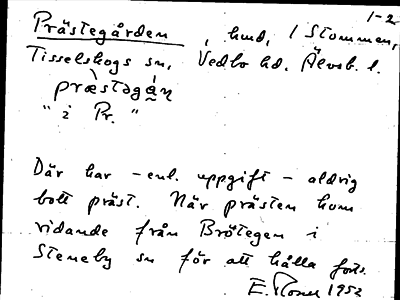 1-2
Prästegården, hmd, / Stommen,
Tisselskogs sn, Vedbo hd. Älvsb. l.
præ̀stəgá̰ṇ
" i Pr. "
Där har - enl. uppgift - aldrig
bott präst. När prästen kom
ridande från Brötegen i
Steneby sn för att hålla
E. 1952